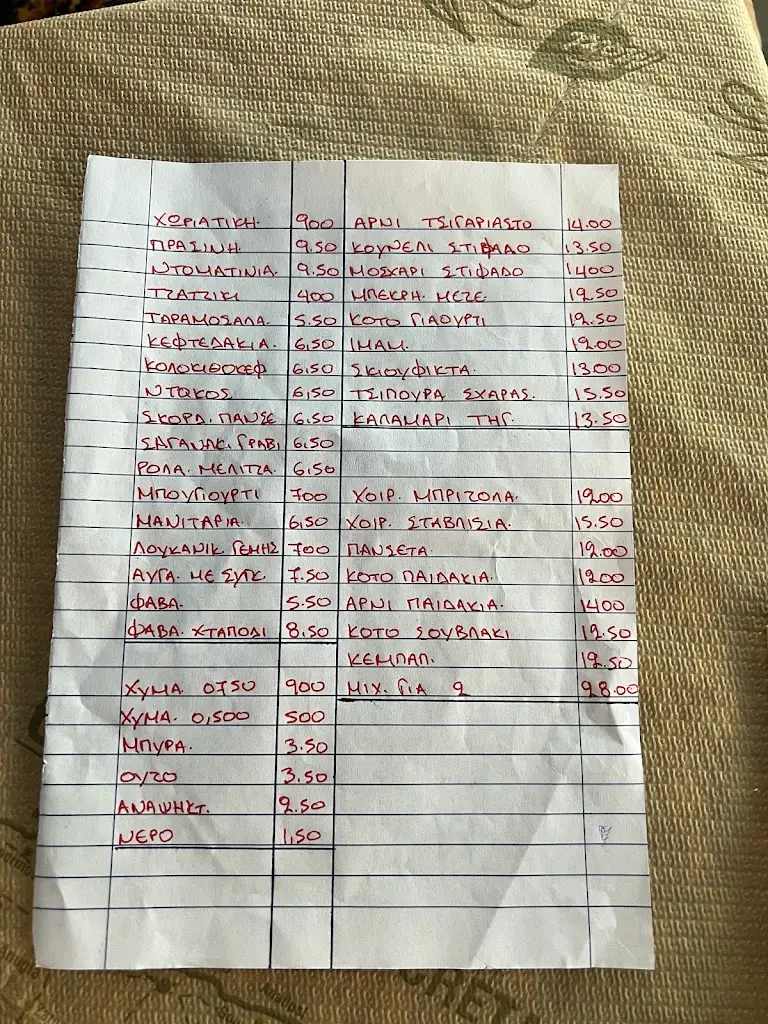 ΧΩΡΙΑΤΙΚΗ. 900
ΠΡΑΣΙΝΗ. 9.50
ΝΤΟΜΑΤΙΝΙΑ. 9.50
ΤΖΑΤΖΙΚΙ 400
ΤΑΡΑΜΟΣΑΛΑ. 5.50
ΚΕΦΤΕΔΑΚΙΑ. 6,50
ΚΟΛΟΚΙΘΟΚΕΦ 6.50
ΝΤΑΚΟΣ 6,50
ΣΚΟΡΔ. ΠΑΝΣΕ 6.50
ΣΑΓΑΝΑΚ. ΓΡΑΒΙ 6.50
ΡΟΛΑ. ΜΕΛΙΤΖΑ. 6.50
ΜΠΟΥΓΙΟΥΡΤΙ 700
ΜΑΝΙΤΑΡΙΑ. 6,50
ΛΟΥΚΑΝΙΚ ΓΕΜΗΣ 700
ΑΥΓΑ. ΜΕ ΣΥΓΚ. 7.50
ΦΑΒΑ. 5.50
ΦΑΒΑ. ΧΤΑΠΟΔΙ 8.50
ΧΥΜΑ 0750 900
ΧΥΜΑ. 0,500 500
ΜΠΥΡΑ. 3.50
ΟΥΖΟ 3.50
ΑΝΑΨΗΚΤ. 2.50
ΝΕΡΟ 1,50
ΑΡΝΙ ΤΣΙΓΑΡΙΑΣΤΟ 14.00
ΚΟΥΝΕΛΙ ΣΤΙΦΑΔΟ 13.50
ΜΟΣΧΑΡΙ ΣΤΙΦΑΔΟ 1400
ΜΠΕΚΡΗ. ΜΕΖΕ. 12.50
ΚΟΤΟ ΓΙΑΟΥΡΤΙ 12.50
ΙΜΑΜ. 12.00
ΣΚΙΟΥΦΙΚΤΑ. 1300
ΤΣΙΠΟΥΡΑ ΣΧΑΡΑΣ. 15.50
ΚΑΛΑΜΑΡΙ ΤΗΓ. 13.50
ΧΟΙΡ. ΜΠΡΙΖΟΛΑ. 1200
ΧΟΙΡ. ΣΤΑΒΛΙΣΙΑ. 15.50
ΠΑΝΣΕΤΑ. 12.00
ΚΟΤΟ ΠΑΙΔΑΚΙΑ. 1200
ΑΡΝΙ ΠΑΙΔΑΚΙΑ. 1400
ΚΟΤΟ ΣΟΥΒΛΑΚΙ 12.50
ΚΕΜΠΑΠ. 12.50
ΜΙΧ. ΓΙΑ 2 28.00